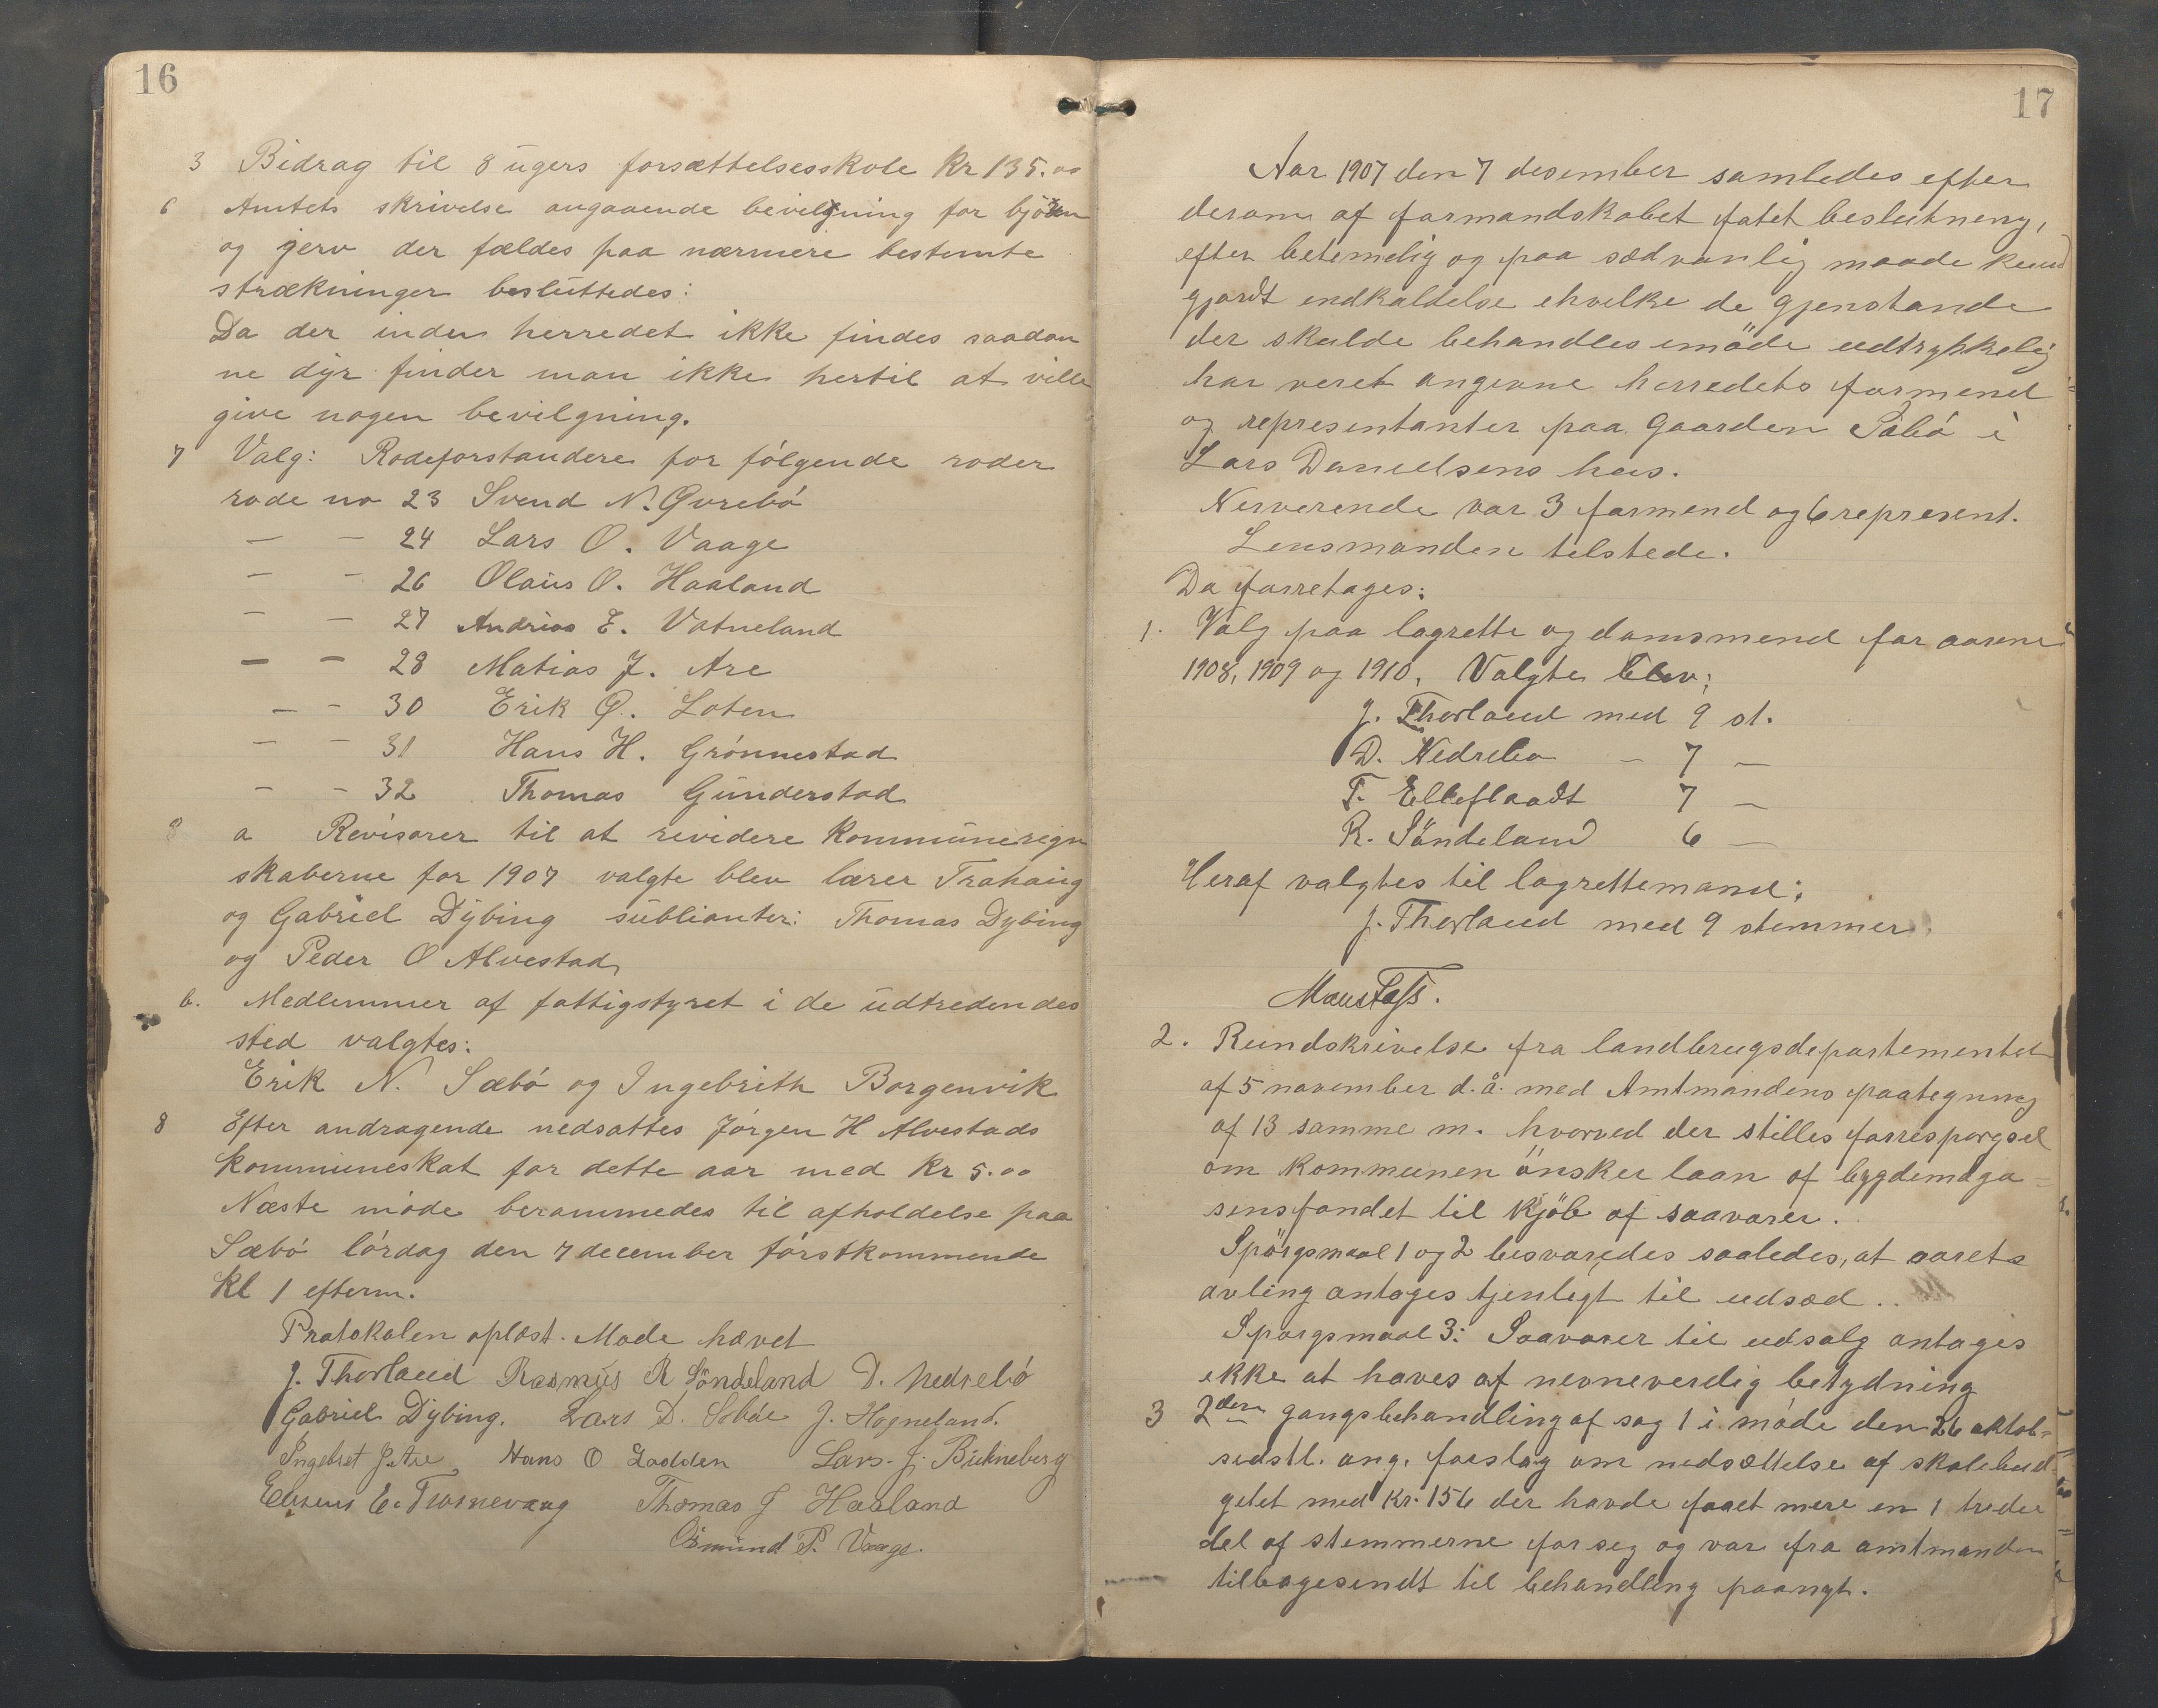 16
3 Bidrag til 8 ugers forsættelsesskole Kr 135.00
6 Amtets skrivelse angaaende bevilgning for bjørn
og jerv der fældes paa nærmere bestemte
strækninger besluttedes:
Da der inden herredet ikke findes saadan
ne dyr finder man ikke hertil at ville
give nogen bevilgning.
7 Valg: Rodeforstandere for følgende roder
rode no 23 Svend N. Øvrebó
— — 24 Lars O. Vaage
— — 26 Olaus O. Haaland
— — 27 Andrias E. Vatneland
— — 28 Matias J. Are
— — 30 Erik O. Loten
— — 31 Hans H. Grónnestad
— — 32 Thomas Gunderstad
8 a Revisorer til at revidere Kommuneregn
skaberne for 1907 valgte blev lærer Trahaug
og Gabriel Dybing sublianter: Thomas Dybing
og Peder O Alvestad
b. Medlemmer af fattigstyret i de udtredendes
sted valgtes:
Erik N. Sæbó og Ingebrith Borgenvik
8 Efter andragende nedsattes Jórgen H Alvestads
Kommuneskat for dette aar med Kr 5.00
Næste móde berammedes til afholdelse paa
Sæbó lórdag den 7 december fórstkommende
Kl 1 efterm.
Protokolen oplæst. Mode hævet
J. Thorland Rasmus R Söndeland D. Nedrebó
Gabriel Dybing. Lars D. J. Hogneland.
Ingebret J. Are Hans O Lodden Lars. J. Birkneberg
E. Thomas J Haaland
Osmund P. Vaage.
17
Aar 1907 den 7 desember samledes efter
derom af formandskabet fatet beslutneng,
efter betemelig og paa sædvanlig maade kund
gjordt endkaldelse ehvilke de gjenstande
der skulde behandles emöde udtrykkelig
har veret angevne herredets formend
og representanter paa Gaarden Säbó i
Lars Danielsens hus.
Nerverende var 3 formend og 6 represent.
Lensmanden telstede.
Da forretages:
1. Valg paa lagrette og domsmend for aarene
1908, 1909 og 1910. Valgte blev:
J. Thorland med 9 st.
D. Nedrebo — 7 —
T. Elleflaadt 7 —
R. Söndeland 6 —
Heraf valgtes til lagrettemand:
J. Thorland med 9 stemmer.
2. Rundskrivelse fra landbrugsdepartementet
af 5 november d. å. med Amtmandens paategning
af 13 samme m. hvorved der stilles forrespørgsel
om Kommunen önsker laan af bygdemaga=
sensfondet til Kjöb af saavarer.
Spörgsmaal 1 og 2 besvaredes saaledes, at aarets
avling antages tjenligt til udsæd.
Sporgsmaal 3: Saavarer til udsalg antages
ekke at haves af nevneverdig betydning
3 2den gangsbehandling af sag 1 i móde den 26 oktob=
sidstl. ang. forslag om nedsættelse af skolebud
getet med Kr. 156 der havde faaet mere en 1 tredie
del af stemmerne for seg og var fra amtmanden
tilbagesendt til behandling paanyt.